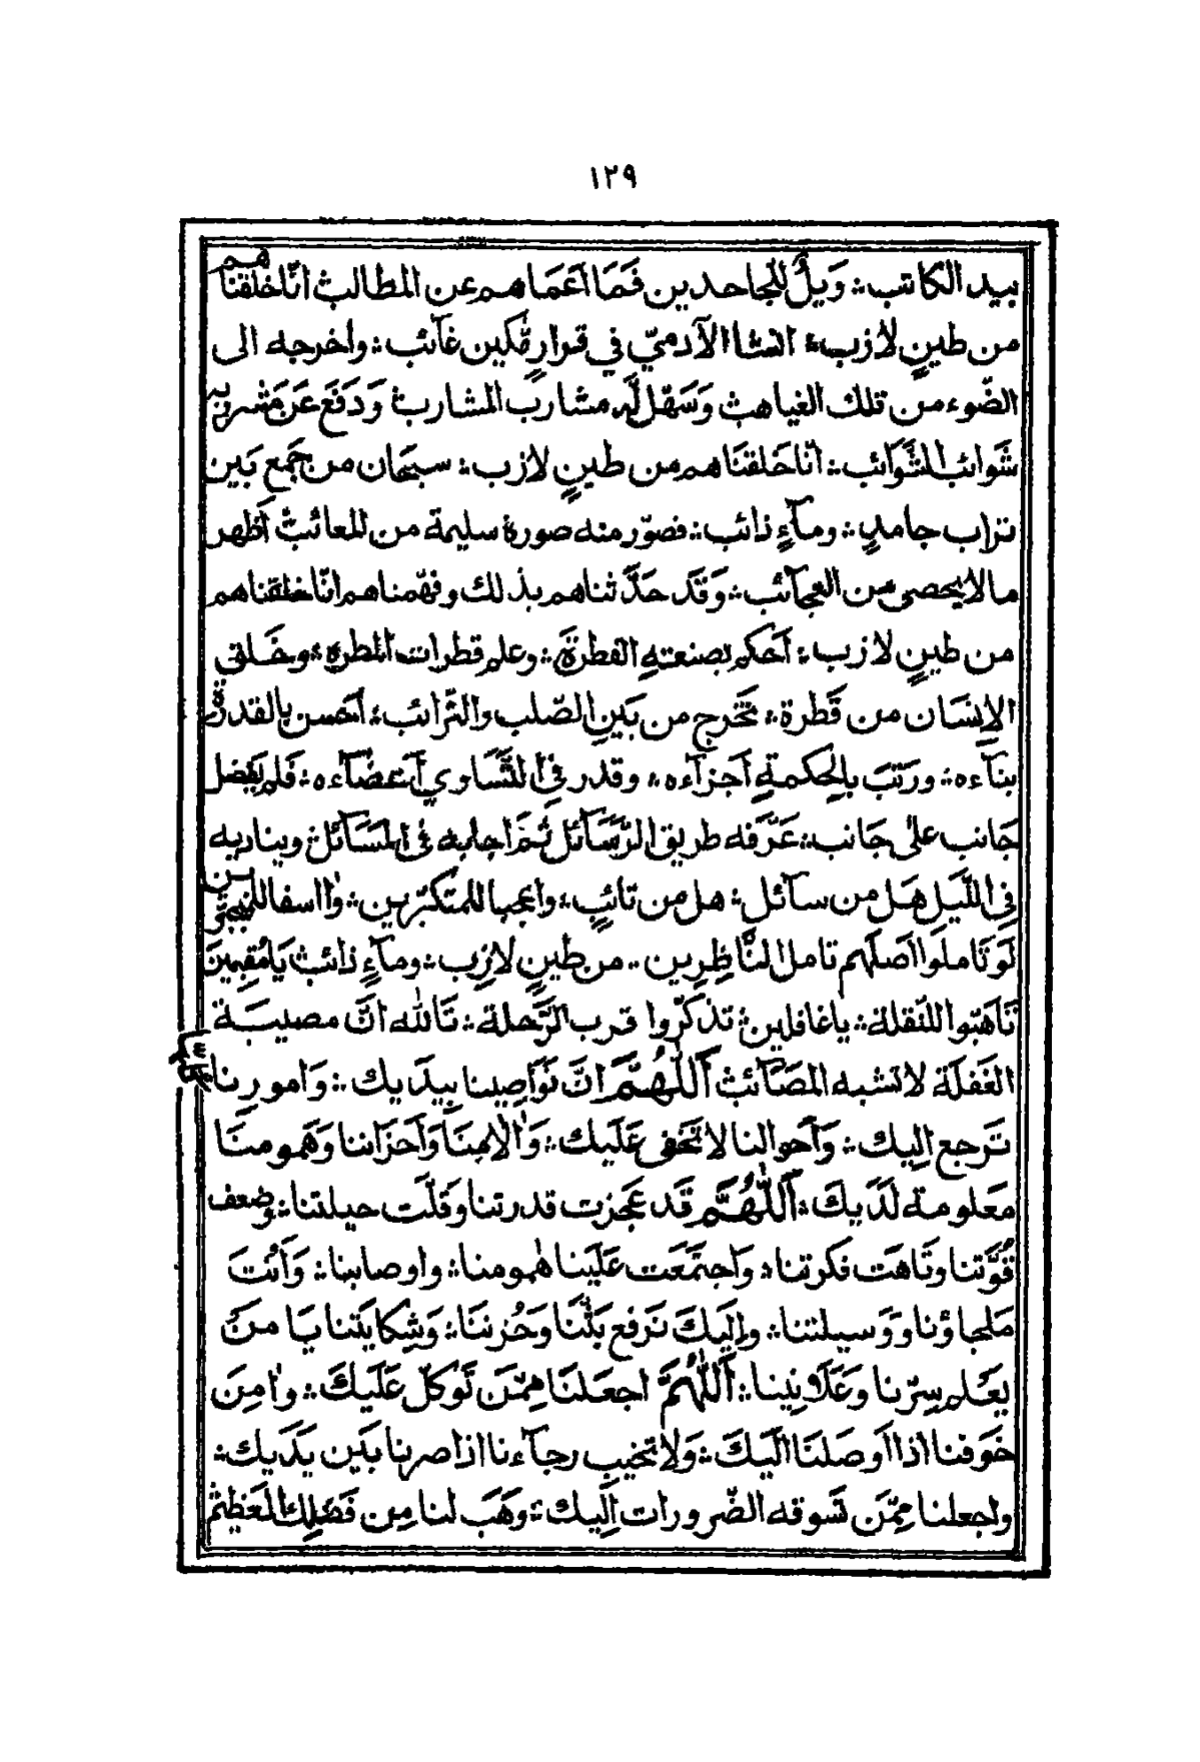 ١٢٩
بيد الكاتب ؞ وَيلٌ للجاحدين فَمَا اَعمَاهم عن المطالب ؞ انّا خلقناهم
من طينٍ لازب ؞ انشا الآدميّ في قرارٍ مّكين غآئب ؞ واخرجه الى
الضّوء من تلك الغياهب ؞ وَسَهّل لَّه مشاربَ المشارب ؞ وَدَفَعَ عَن مَشربه
شَوائب الشَّوَائب ؞ انّا خَلقنَاهم من طينٍ لازب ؞ سبحَان من جَمَع بَين
تراب جامدٍ ؞ ومآءٍ ذائب ؞ فصوّر منه صورة سليمة من المعائب ؞ اَظهر
ما لا يحصى من العجآئب ؞ وَقَد حَدَّثناهم بذلك وفهّمناهم انّا خلقناهم
من طينٍ لازب ؞ اَحكم بصنعتهِ الفطرةَ ؞ وعلم قطرات المطره ؞ وخَلق
الاِنسَان من قَطرة ؞ تخَرج من بَينِ الصّلب والتّرائب ؞ اَحسن بالقدرة
بنآءه ؞ ورَتبَ بالحِكمةِ اَجزآءه ؞ وقدر فِى التَّسَاوي اَعضَآءه ؞ فَلم يفضل
جَانب على جَانب ؞ عَرَّفه طريق الرَّسَآئل ثُمَّ اجابه فى المَسَآئل ؞ ويناديه
فِى اللَّيل هَل من سآئل ؞ هل من تائبٍ ؞ واعجبا للمتكبّرين ؞ وا اسفا للنبيين
لَو تَاملَوا اَصلَهم تامل النَّاظِرِين ؞ من طينٍ لازِب ؞ ومآءٍ ذائب ؞ يَا مُقِيمِينَ
تَاَهَّبوا للنّقلة ؞ يا غافلين ؞ تذكّروا قرب الرَّحلة ؞ تَالله انَّ مصيبَة
الغَفلَة لا تشبه المصَآئب ؞ اَللّهُمَّ اِنَّ نَوَاصِينا بِيدَيك ؞ وَامورِنا
تَرجع اِليك ؞ وَاَحوالنا لا تَخفى عَلَيك ؞ وَالاٰمنَا وَاَحزَاننا وَهمومنَا
مَعلومة لَدَيك ؞ اَللّهُمَّ قَد عَجزت قدرتنا وَقلّت حيلتنا ؞ وضعف
قُوّتنا وتَاهَت فكرتنا ؞ وَاجتَمَعَت عَلَينا همومنا ؞ واوصابنا ؞ وَاَنتَ
مَلجاؤنا وَوَسيلتنا ؞ واِلَيكَ نَرفع بَثّنَا وَحُزننَا ؞ وَشِكايَتنا يَا مَنْ
يعَلم سِرّنا وَعَلانِيتنا ؞ اَللّهُمَّ اجعَلنَا مِمَّن تَوكلّ عَلَيكَ ؞ واٰمِنَ
خَوفنا اذا اَوصَلنَا الَيكَ ؞ وَلا تخيب رجآءنا اذا صرنا بَين يَدَيك ؞
واجعلنا مِمّن تَسوقه الضّرورات اِليك ؞ وَهَب لنا مِن فَضلِك العَظيم